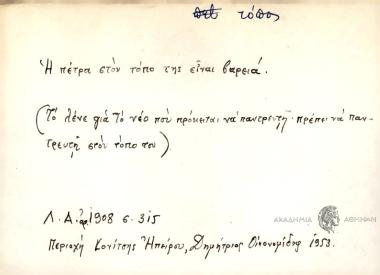 τόπος
Ἡ πέτρα στὸν τόπο της εἶναι βαρειά.
(Τὸ λένε γιὰ τὸ νέο ποὺ πρόκειται νὰ παντρευτῇ· πρέπει νὰ παν-
τρευτῇ στὸν τόπο του)
Λ. Α. ἀρ. 1908 σ. 315
Περιοχὴ Κονίτσης Ἠπείρου, Δημήτριος Οἰκονομίδης 1953.
ΑΚΑΔΗΜΙΑ ΑΘΗΝΩΝ